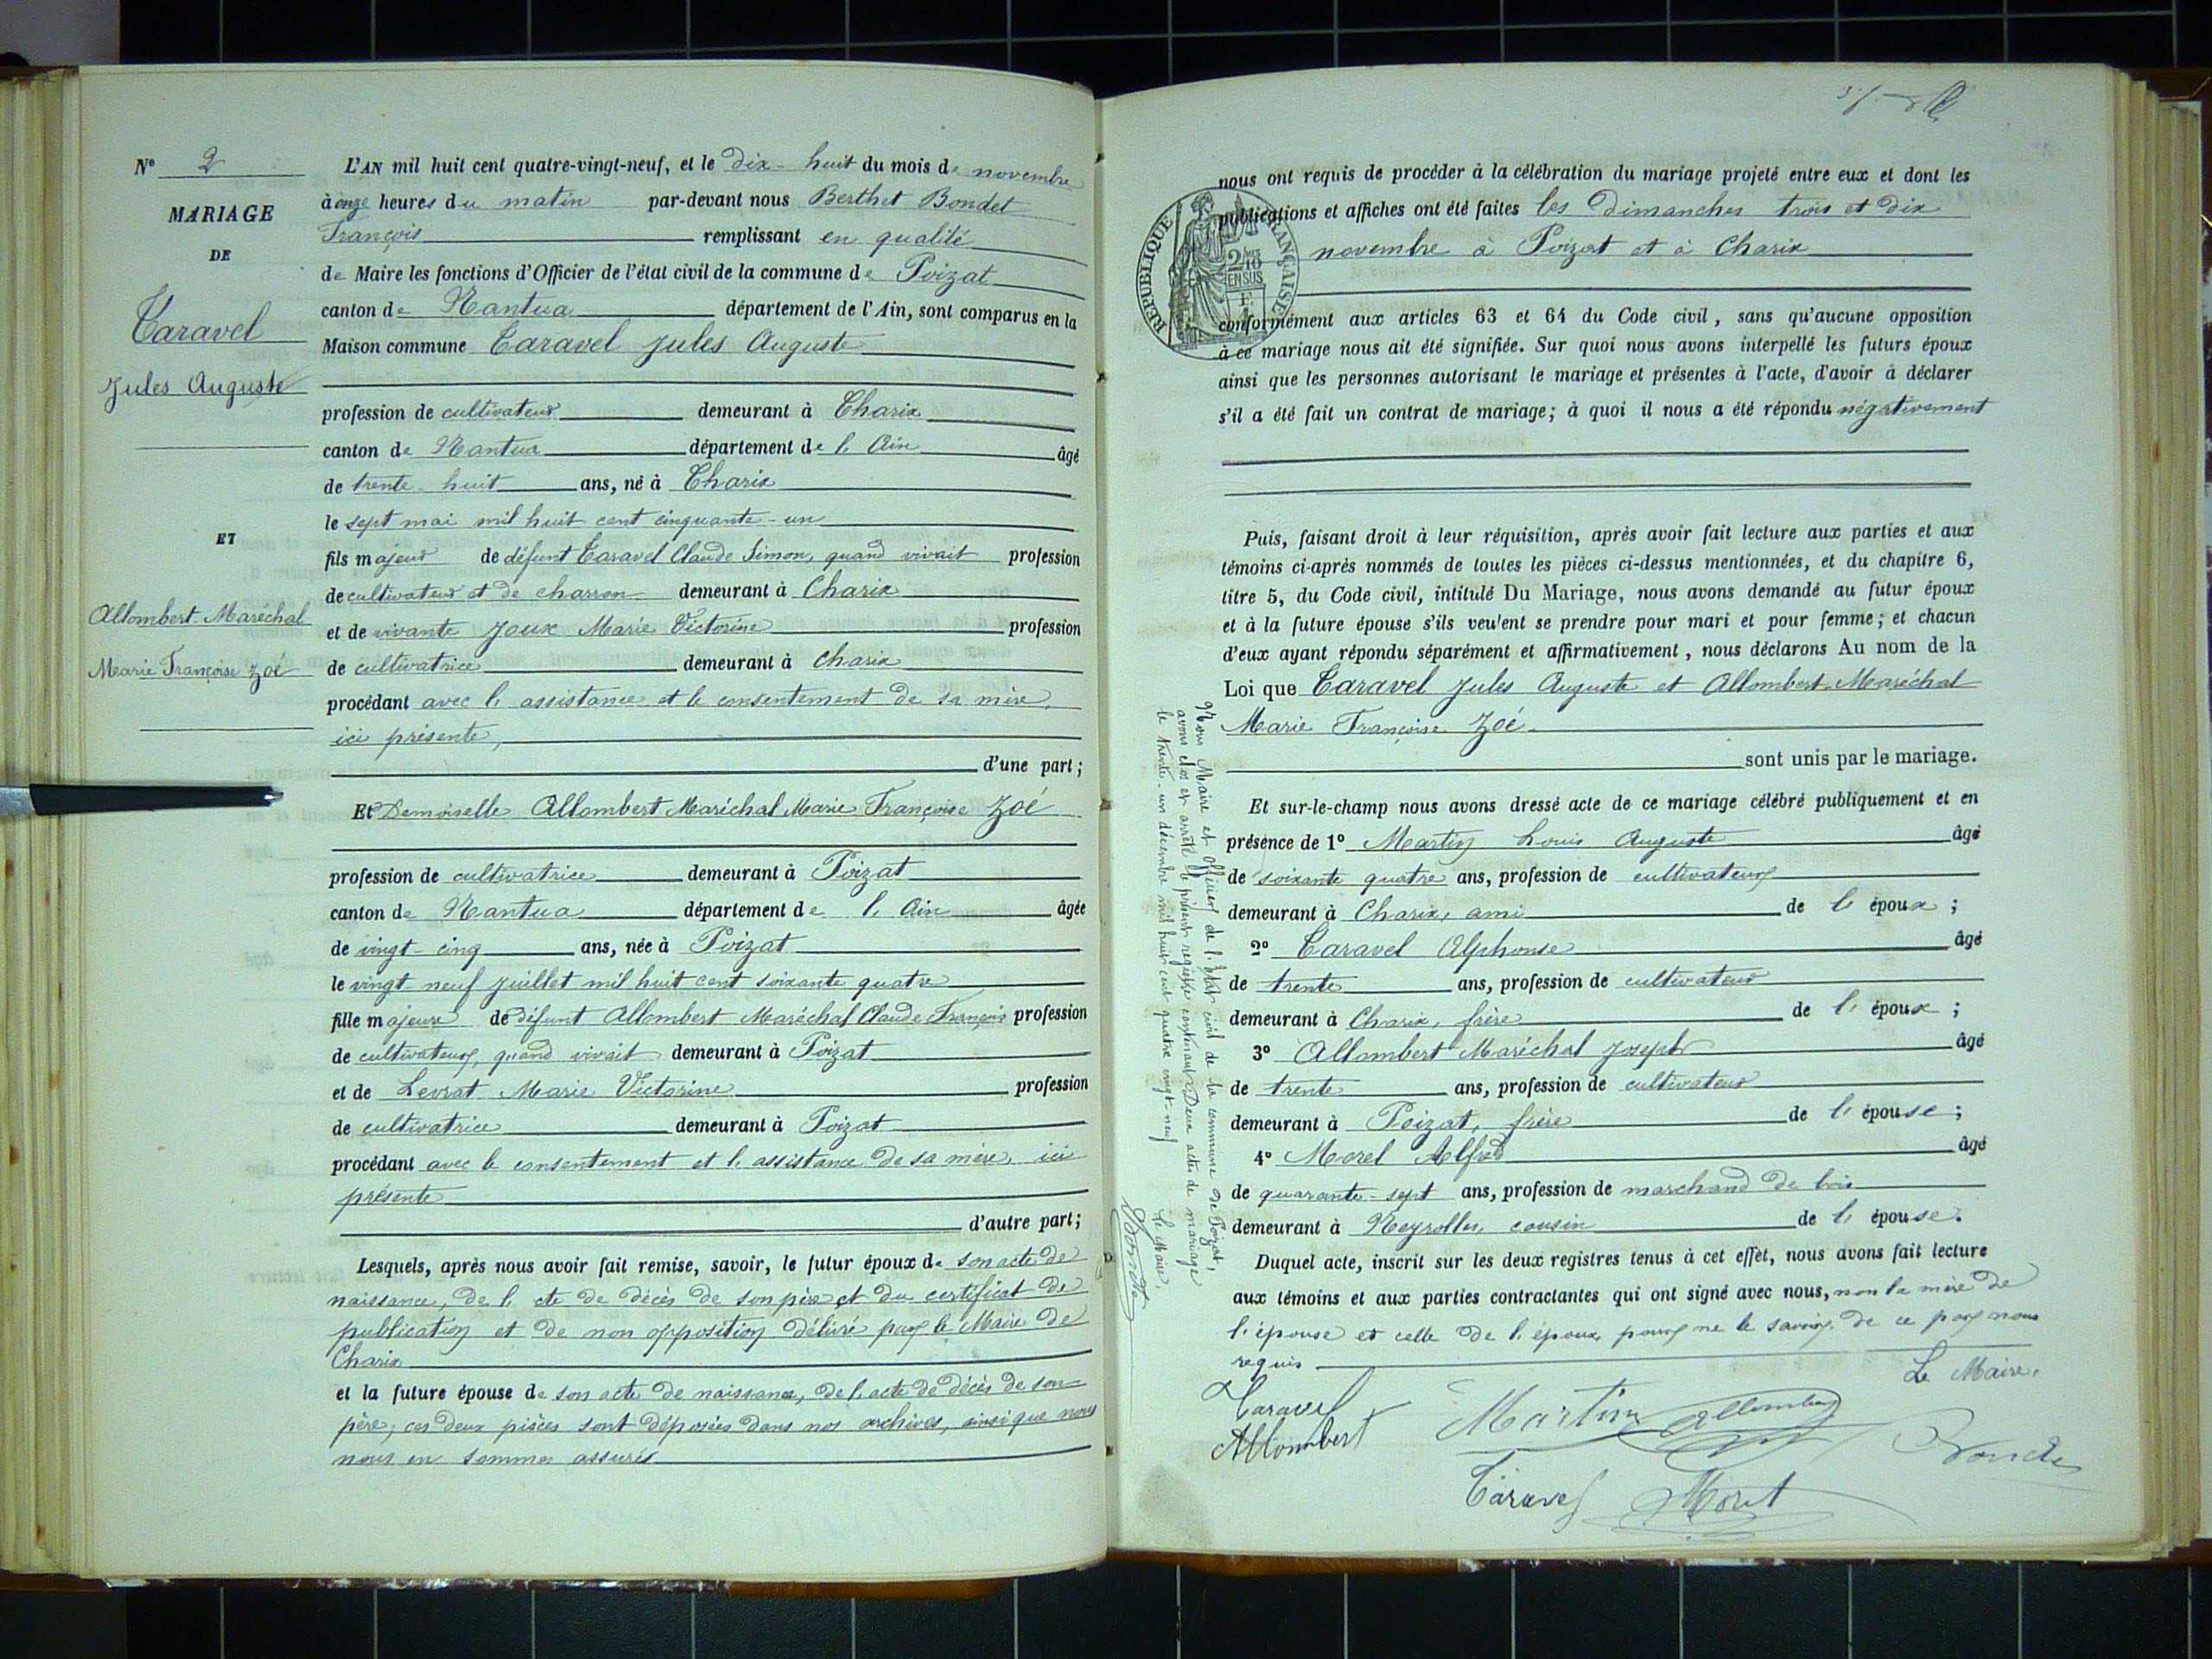 N° 2
MARIAGE
DE
Caravel
Jules Auguste
ET
Allombert-Maréchal
Marie Françoise Zoé
L'AN mil huit cent quatre-vingt-neuf, et le dix-huit du mois de novembre
à onze heures du matin par-devant nous Berthet Bondet
François remplissant en qualité
de Maire les fonctions d'Officier de l'état civil de la commune de Poizat
canton de Nantua département de l'Ain, sont comparus en la
Maison commune Caravel Jules Auguste
profession de cultivateur demeurant à Charix
canton de Nantua département de l'Ain âgé
de trente-huit ans, né à Charix
le sept mai mil huit cent cinquante-un
fils majeur de défunt Caravel Claude Simon, quand vivait profession
de cultivateur et de charron demeurant à Charix
et de vivante Joux Marie Victorine profession
de cultivatrice demeurant à Charix
procédant avec l'assistance et le consentement de sa mère,
ici présente,
d'une part;
Et Demoiselle Allombert Maréchal Marie Françoise Zoé
profession de cultivatrice demeurant à Poizat
canton de Nantua département de l'Ain âgée
de vingt-cinq ans, née à Poizat
le vingt-neuf juillet mil huit cent soixante quatre
fille majeure de défunt Allombert Maréchal Claude François profession
de cultivateur, quand vivait demeurant à Poizat
et de Levrat Marie Victorine profession
de cultivatrice demeurant à Poizat
procédant avec le consentement et l'assistance de sa mère, ici
présente
d'autre part;
Lesquels, après nous avoir fait remise, savoir, le futur époux de son acte de
naissance, de l'cte de décès de son père et du certificat de
publication et de non opposition délivré par le Maire de
Charix
et la future épouse de son acte de naissance, de l'acte de décès de son
père; ces deux pièces sont déposées dans nos archives, ainsi que nous
nous en sommes assurés
nous ont requis de procéder à la célébration du mariage projeté entre eux et dont les
publications et affiches ont été faites les dimanches trois et dix
novembre à Poizat et à Charix
REPUBLIQUE FRANÇAISE
conformément aux articles 63 et 64 du Code civil, sans qu'aucune opposition
à ce mariage nous ait été signifiée. Sur quoi nous avons interpellé les futurs époux
ainsi que les personnes autorisant le mariage et présentes à l'acte, d'avoir à déclarer
s'il a été fait un contrat de mariage; à quoi il nous a été répondu négativement
Puis, faisant droit à leur réquisition, après avoir fait lecture aux parties et aux
témoins ci-après nommés de toutes les pièces ci-dessus mentionnées, et du chapitre 6,
titre 5, du Code civil, intitulé Du Mariage, nous avons demandé au futur époux
et à la future épouse s'ils veulent se prendre pour mari et pour femme; et chacun
d'eux ayant répondu séparément et affirmativement, nous déclarons Au nom de la
Loi que Caravel Jules Auguste et Allombert-Maréchal
Marie Françoise Zoé
sont unis par le mariage.
Et sur-le-champ nous avons dressé acte de ce mariage célébré publiquement et en
présence de 1° Martin Louis Auguste âgé
de soixante quatre ans, profession de cultivateur
demeurant à Charix, ami de l'époux;
2° Caravel Alphonse âgé
de trente ans, profession de cultivateur
demeurant à Charix, frère de l'époux;
3° Allombert Maréchal Joseph âgé
de trente ans, profession de cultivateur
demeurant à Poizat, frère de l'épouse;
4° Morel Alfred âgé
de quarante-sept ans, profession de marchand de bois
demeurant à Neyrolles, cousin de l'épouse.
Duquel acte, inscrit sur les deux registres tenus à cet effet, nous avons fait lecture
aux témoins et aux parties contractantes qui ont signé avec nous, non la mère de
l'épouse et celle de l'époux pour ne le savoir, de ce par nous
requis
Le Maire,
Caravel
Allombert
Martin
Allombert
Bondet
Caravel
Morel
Nous Maire et Officier de l'Etat civil de la commune de Poizat,
avons clos et arrêté le présent registre contenant Deux actes de mariage
le trente-un décembre mil huit cent quatre vingt-neuf
Le Maire,
Bondet